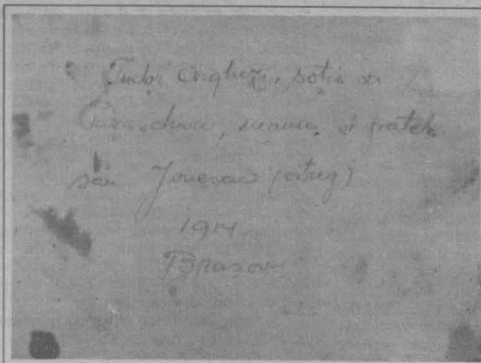 Tudor Arghezi, soția sa
Paraschiva, și fratele
său Ionescu (vitreg)
1914
Brasov